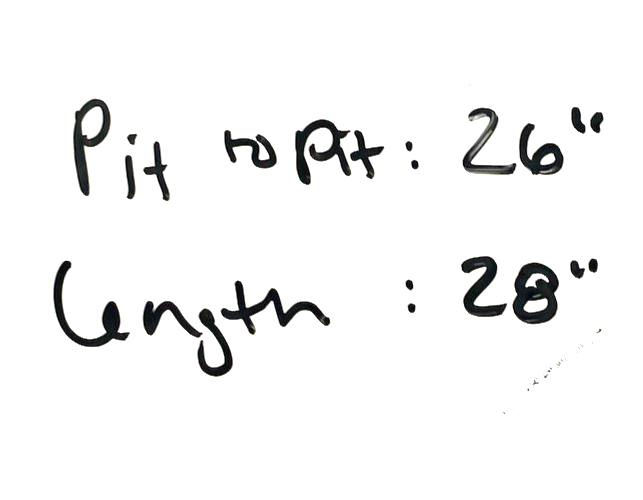 Pit to Pit: 26"
length : 28"